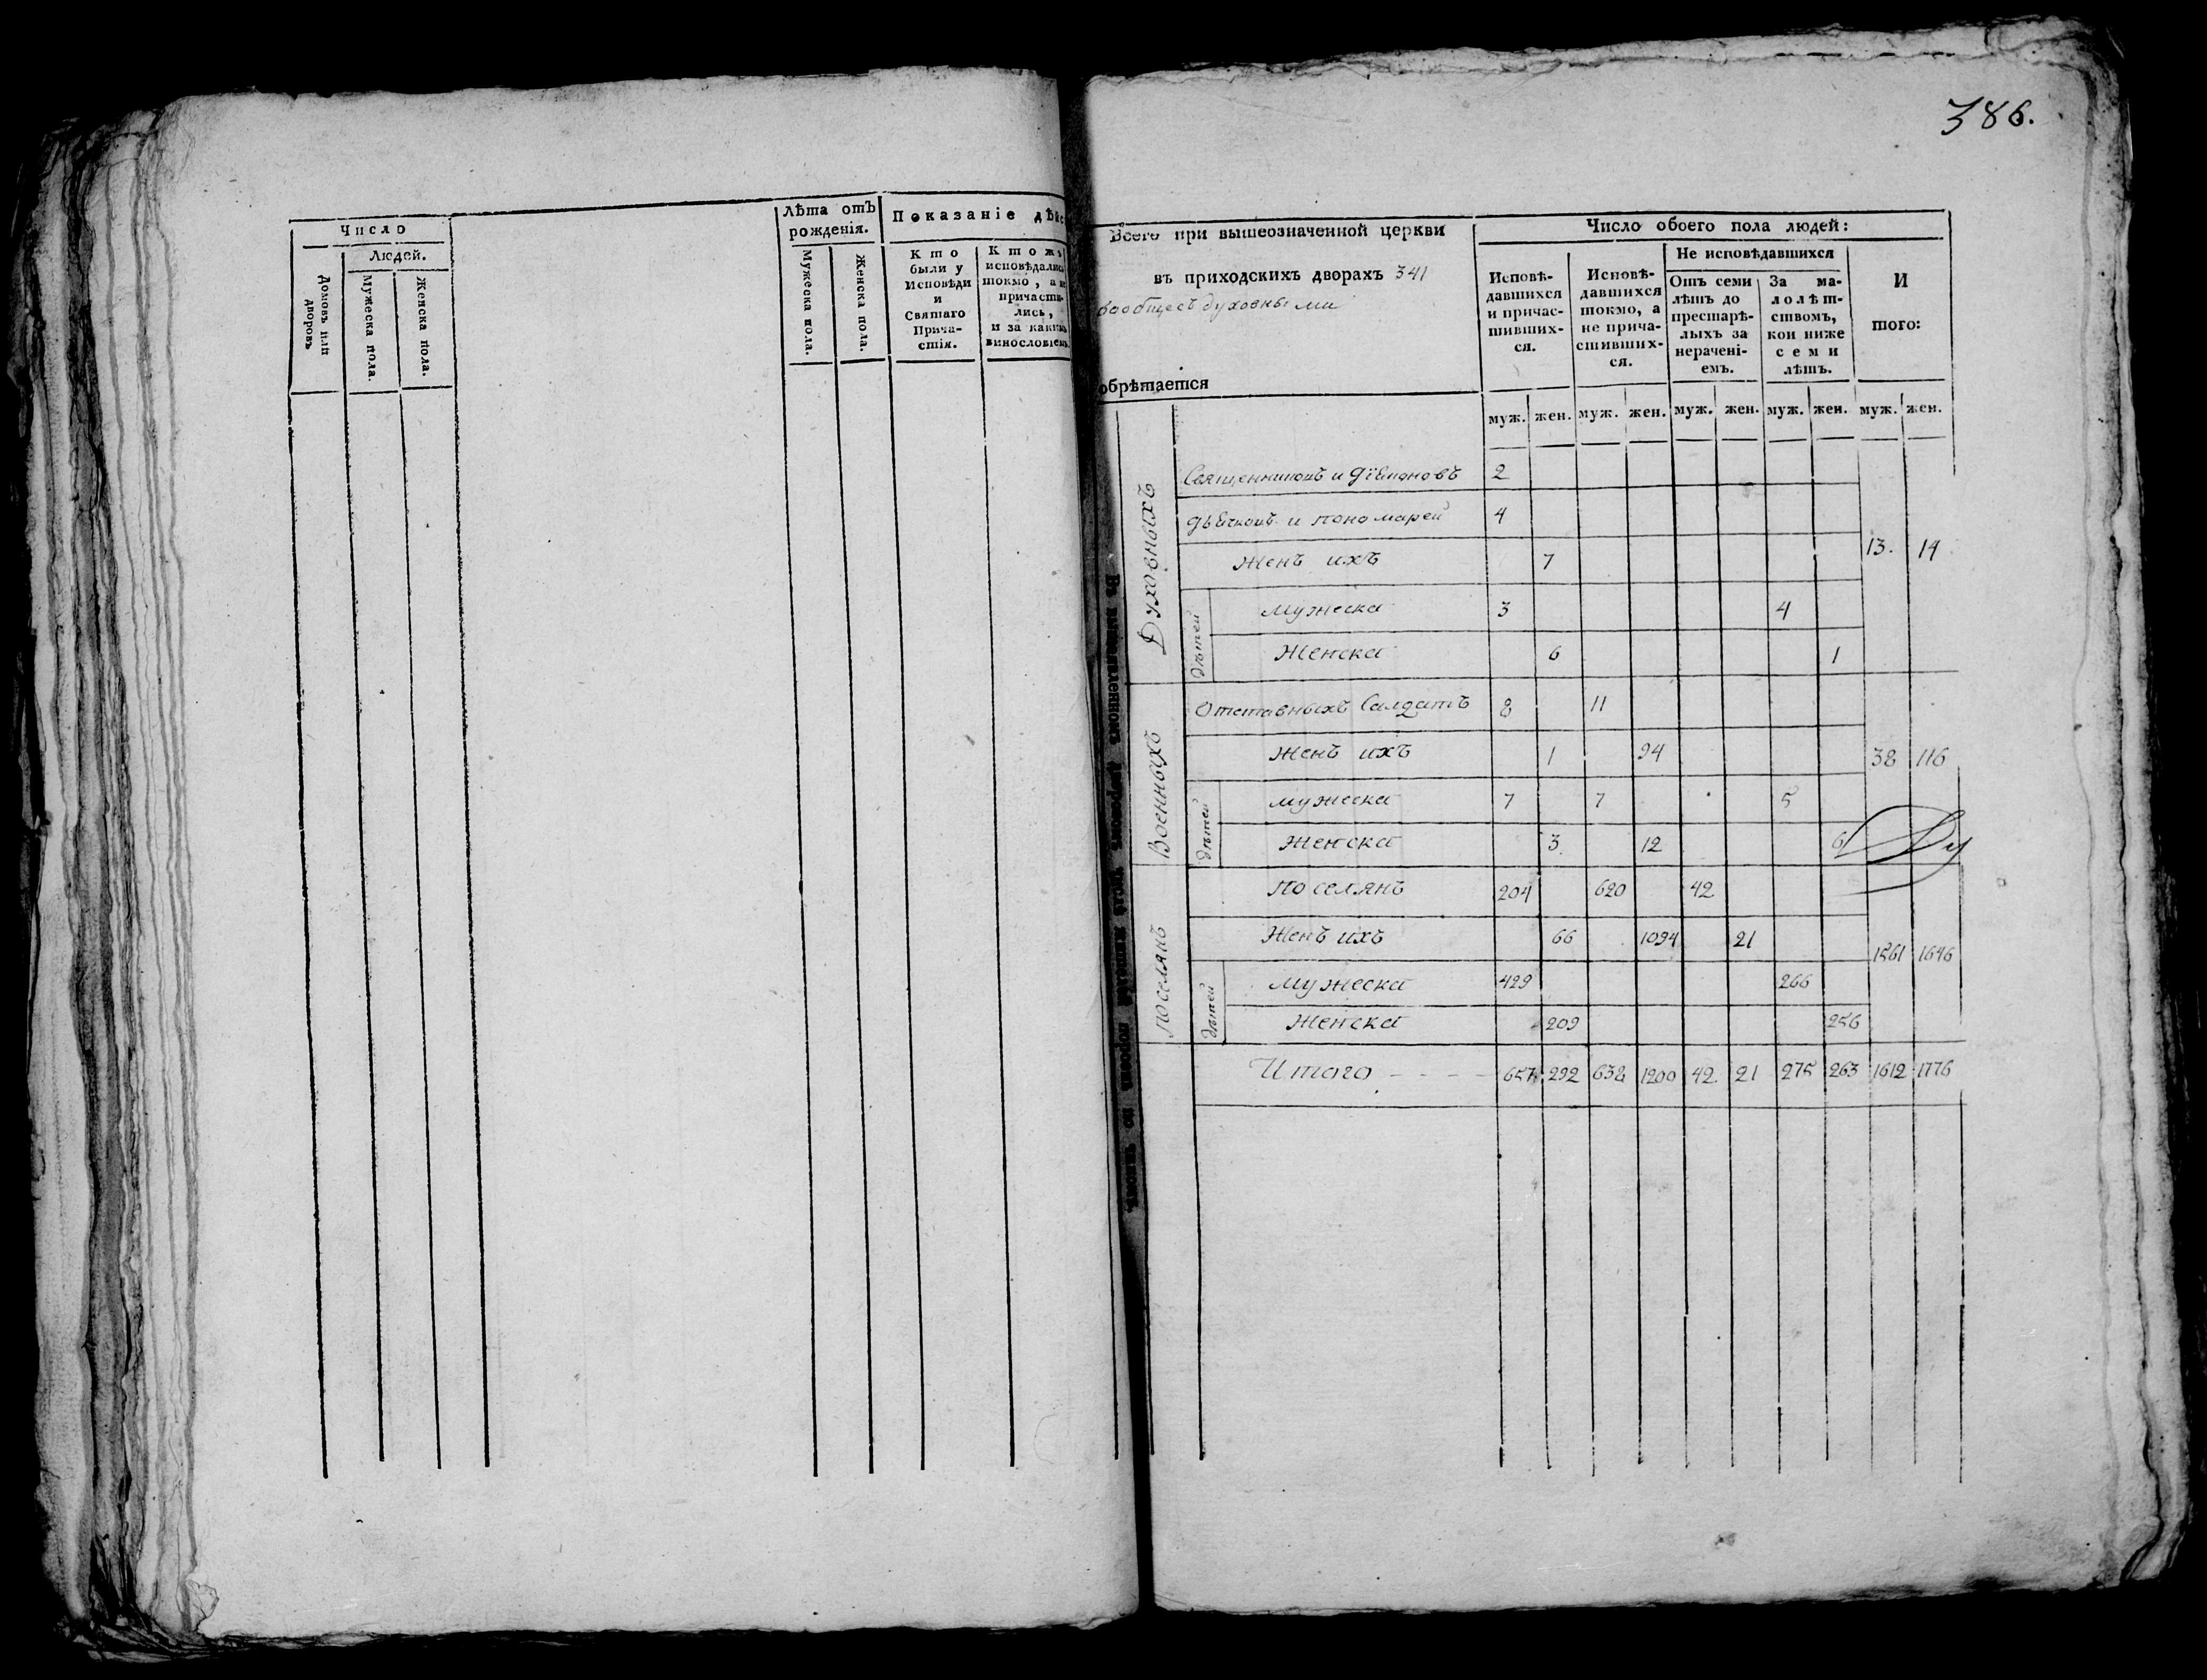 386.
Число
Людей.
Домовъ или дворовъ
Мужеска пола.
Женска пола.
Лѣта отъ
рожденія.
Мужеска пола.
Женска пола.
Показаніе дѣйс
Кто
были у
Исповѣди
и
Святаго
Прича-
стія.
Кто жъ
исповѣдались
токмо, а не
причасти-
лись,
и за какимъ
винословіемъ.
Всего при вышеозначенной церкви
въ приходскихъ дворахъ 341
вообще съ духовными
обрѣтается
Число обоего пола людей:
Исповѣ-
давшихся
и причас-
тивших-
ся.
Исповѣ-
давшихся
токмо, а
не прича-
стивших-
ся.
Не исповѣдавшихся
Отъ семи
лѣтъ до
престарѣ-
лыхъ за
нерачені-
емъ.
За ма-
лолѣт-
ствомъ,
кои ниже
семи
лѣтъ.
И
того:
муж. жен. муж. жен. муж. жен. муж. жен. муж. жен.
Духовныхъ
Священниковъ и Діаконовъ 2
дьячковъ и пономарей 4
Женъ ихъ 7 13. 14
дѣтей
Мужеска 3 4
Женска 6 1
Военныхъ
Отставныхъ Салдатъ 8 11
Женъ ихъ 1 94 38 116
дѣтей
мужеска 7 7 5
Женска 3 12 6
Ду
поселянъ
Поселянъ 204 620 42
Женъ ихъ 66 1094 21 1561 1646
дѣтей
Мужеска 429 266
Женска 209 256
Итого - - - - 657 292 638 1200 42 21 275 263 1612 1776